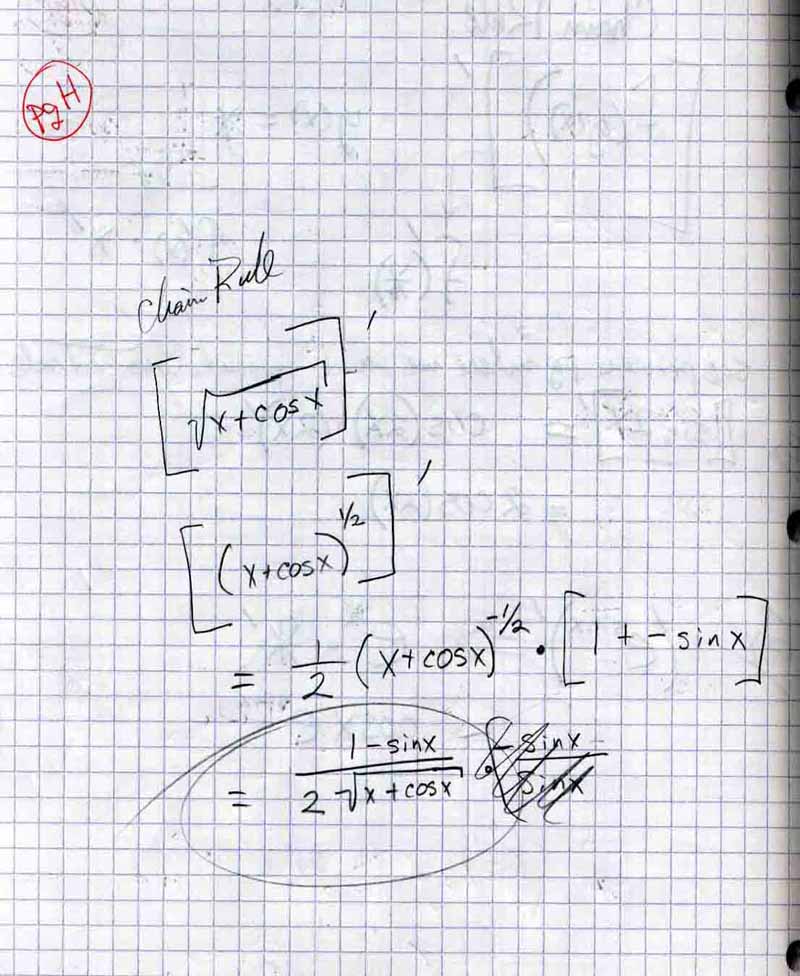 pg H
Chain Rule
[√(x+cosx)]'
[(x+cosx)^1/2]'
= 1/2 (x+cosx)^-1/2 · [1 + - sinx]
= (1-sinx)/(2√(x+cosx))